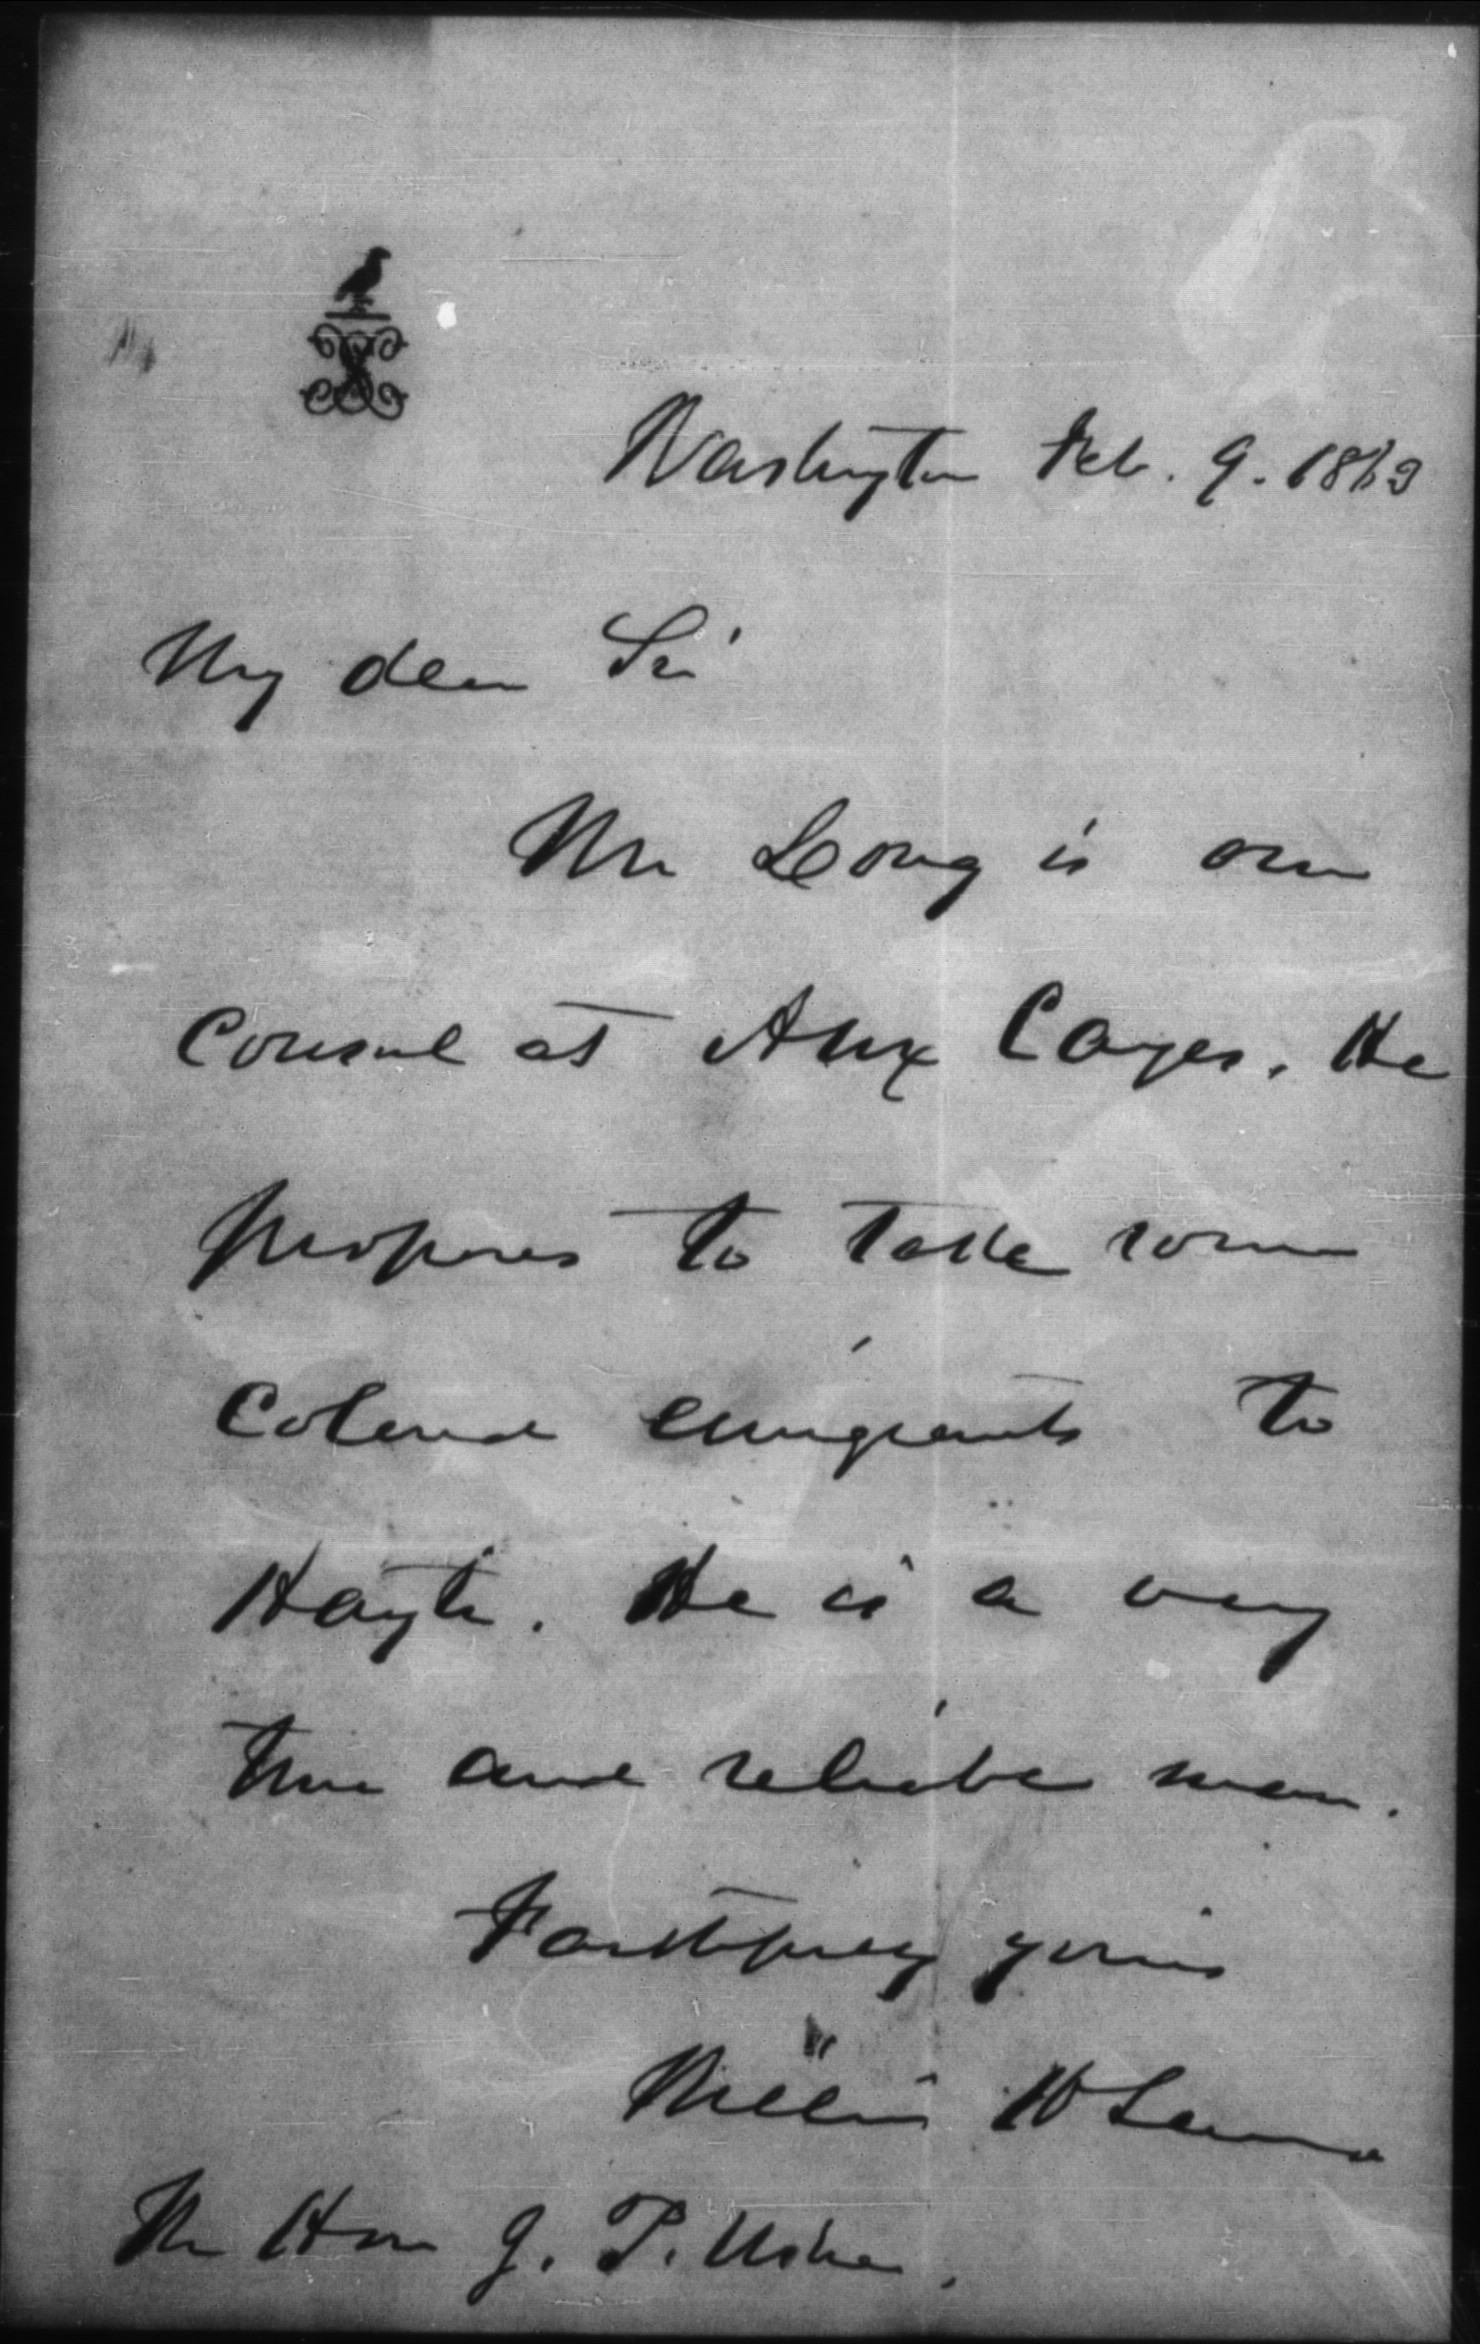 Washington Feb. 9. 1863
My dear Sir
Mr Long is our
Consul at Aux Cayes. He
proposes to take some
Colored emigrants to
Hayti. He is a very
true and reliable man.
Faithfully yours
William H Sewa
The Hon J. P. Usher.